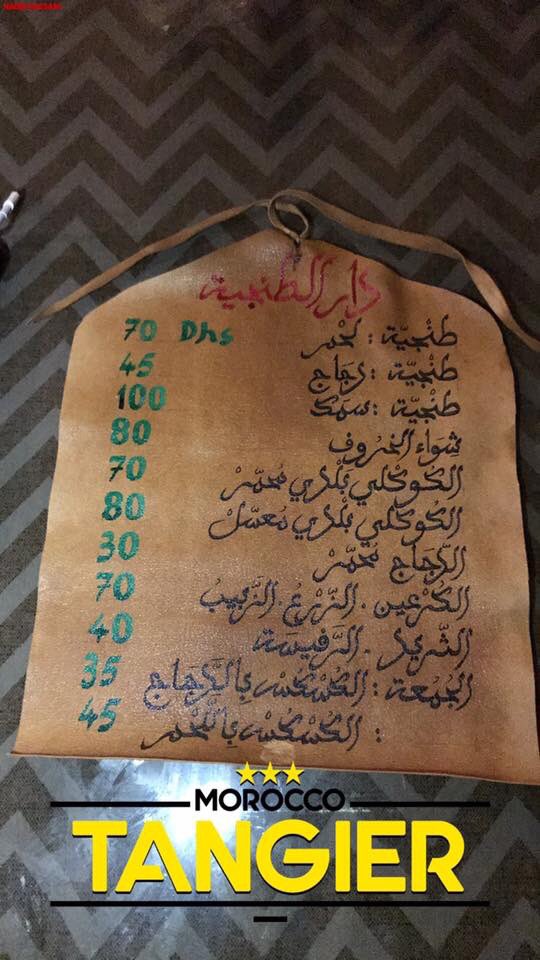 دار الطنجية
طنْجيّة : لحْم 70 Dhs
طنْجيّة : دجَاج 45
طنْجيّة : سمَك 100
شِوَاء الخرُوف 80
الكُوكْلي بلْدي محمّرْ 70
الكُوكْلي بلْدي معسّلْ 80
الدّجَاج محمّرْ 30
الكُرْعين . الزّرْعُ . الزّبيبُ 70
الثّريد . الرّفيسَة 40
الجُمعَة : الكُسْكسْ بِالدّجَاج 35
: الكُسْكسْ بِاللّحْمر 45
MOROCCO
TANGIER